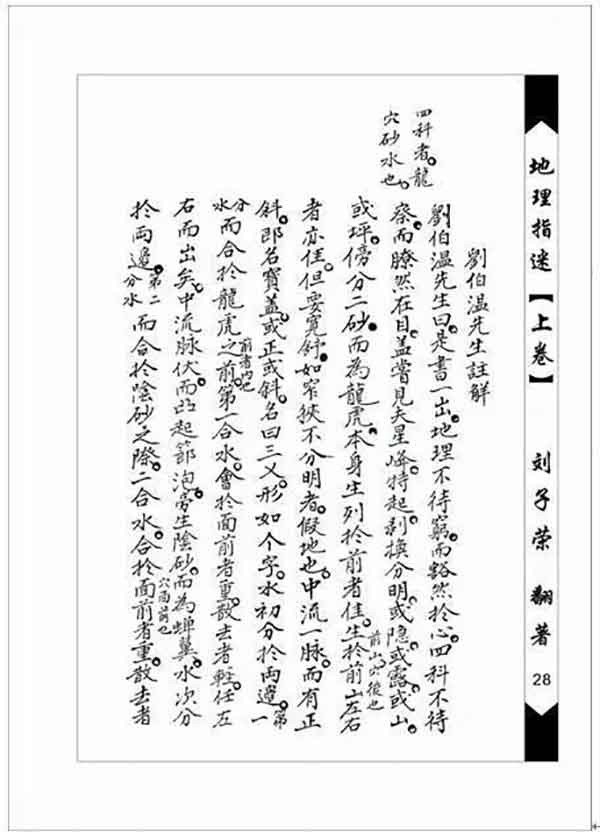 地理指迷【上卷】
刘子荣 翻著
28
劉伯溫先生註解
四科者。龍
穴砂水也。
劉伯溫先生曰。是書一出。地理不待窮。而豁然於心。四科不待
察。而瞭然在目。蓋嘗見夫星峰特起。剥換分明。或隐。或露。或山。
或坪。傍分二砂。而為龍虎。本身生列於前者佳。生於前山左右
前山穴後也
者亦佳。但要寬舒。如窄狹不分明者。假地也。中流一脉。而有正
斜。即名寶蓋。或正或斜。名曰三义。形如个字。水初分於両邉。第一
分水
而合於龍虎之前。第一合水。會於面前者重。散去者輕。任左
前者内也
右而出矣。中流脉伏。而凸起節泡。旁生陰砂。而為蝉翼。水次分
於両邉。第二分水
而合於陰砂之際。二合水。合於面前者重。散去者
穴面前也